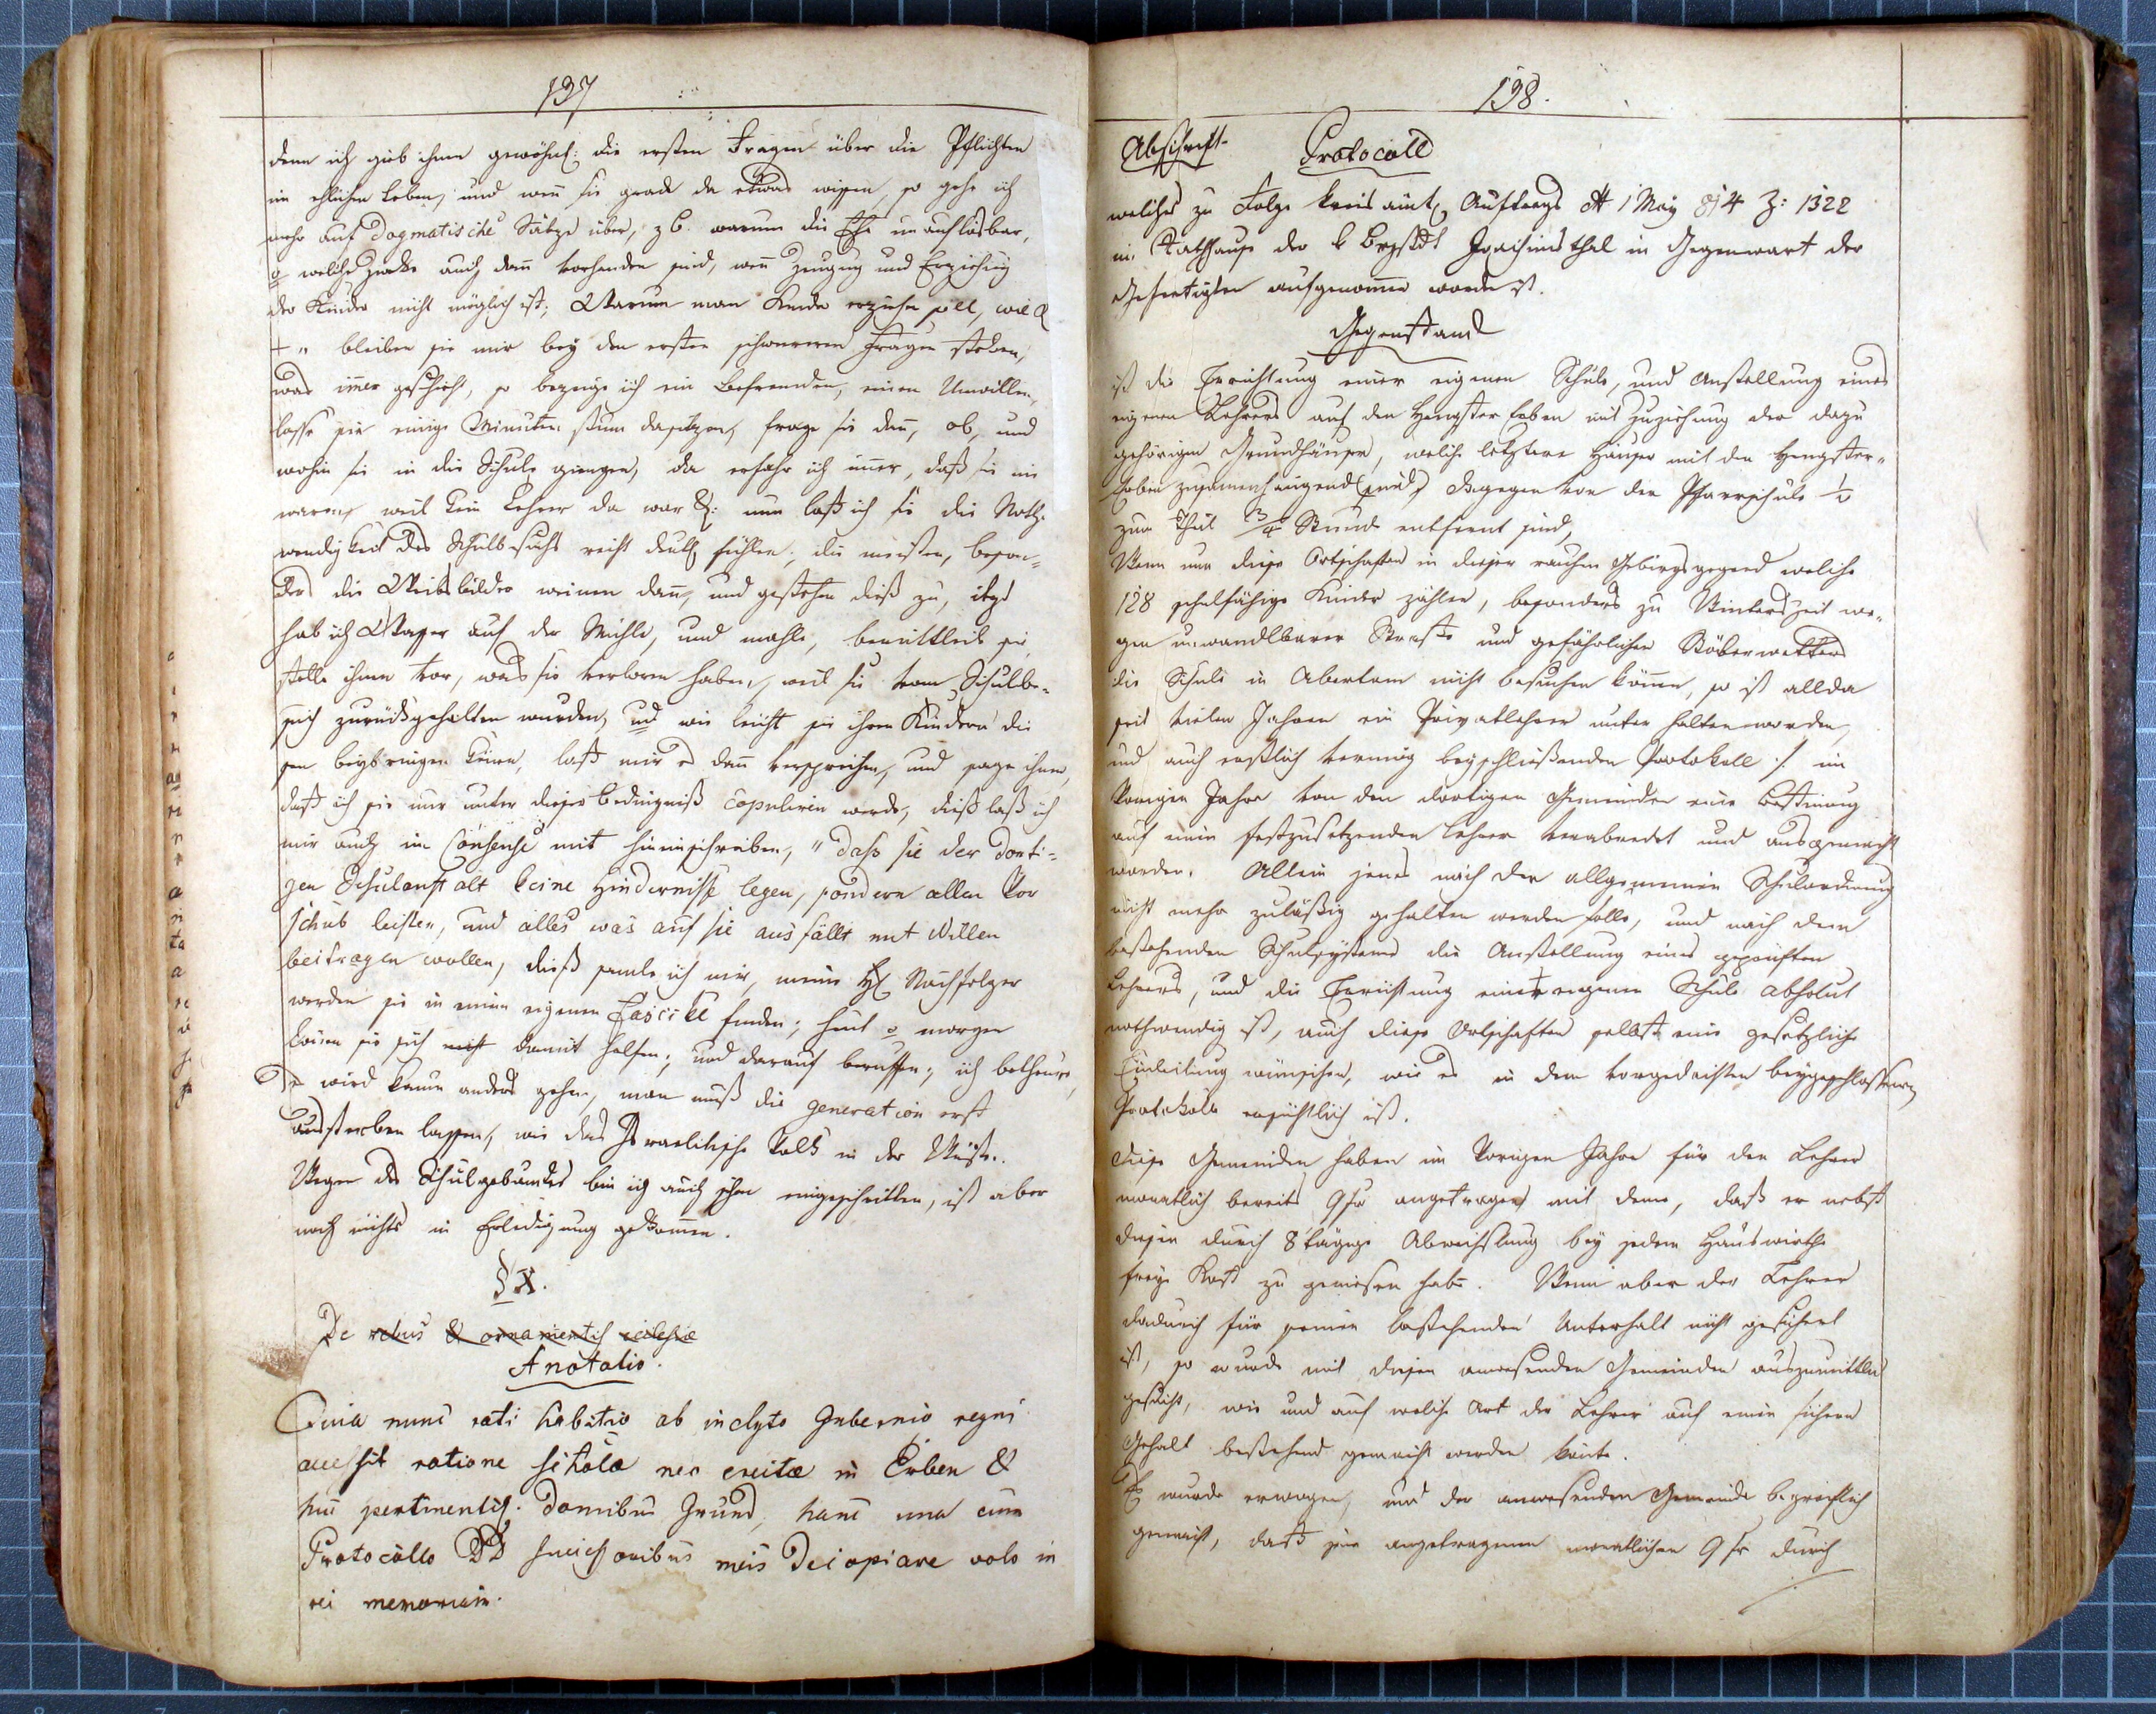 137
denn ich gieb ihnen gewöhnl: die ersten Fragen über die Pflichten
im ehlichen Leben, und wenn sie grade da etwas wissen, so gehe ich
mehr auf Dogmatische Sätze über, z B. warum die Ehe unauflösbar,
welche Zwecke auch dann vorhanden sind, wenn Zeugung und Erziehung
der Kinder nicht möglich ist; Warum man Kinder erziehen soll, wie &
bleiben sie mir bey den ersten schwereren Fragen stehen,
was imer geschieht, so bezeuge ich ein Befremden, einen Unwillen,
lasse sie einige Minuten stum dasitzen, frage sie dann, ob, und
wohin sie in die Schule giengen, da erfahr ich imer, daß sie nie
waren, weil kein Lehrer da war &: nun laß ich sie die Noth-
wendigkeit des Schulbesuchs recht deutl fühlen; die meisten, beson-
ders die Weibsbilder weinen dann, und gestehen dieß zu, itzt
hab ich Wasser auf der Mühle, und mahle, bemittleid sie,
stelle ihnen vor, was sie verloren haben, weil sie vom Schulbe-
such zurückgehalten wurden, und wie leicht sie ihren Kindern die
sen beybringen könen, laß mir es dann versprechen, und sage ihnen,
daß ich sie nur unter dieser Bedingniß copuliren werde, dieß laß ich
mir auch im Consense mit hineinschreiben, "dass sie der dorti-
gen Schulanstalt keine Hindernisse legen, sondern allen Vor
schub leisten, und alles was auf sie ausfällt mit Willen
beitragen wollen, dieß samle ich mir, meine H Nachfolger
werden sie in einem eigenen Fascikel finden; heut o morgen
könen sie sich damit helfen; und darauf beruffen; ich betheure,
es wird kaum anders gehen, man muß die generation erst
aussterben lassen, wie das Israelitische Volk in der Wüste.
Wegen des Schulgebäudes bin ich auch schon eingeschritten, ist aber
noch nichts in Erledigung gekommen.
§ X.
De rebus & ornamentis ecclesiæ
Anotatio.
Quia nunc rati habitio ab inclyto Gubernio regni
accessit ratione scholæ neo erectæ in Erben &
huc pertinentiq. domibus Grund, hanc una cum
Protocollo DD successoribus meis decopiare volo in
rei memoriam.
138.
Abschrift. Protocoll
welches zu Folge kreisämtl Auftrags dtt 1 May 814 Z: 1322
im Rathhause der k Bergstadt Joachimsthal in Gegenwart der
Gefertigten aufgenommen worden ist.
Gegenstand
ist die Errichtung einer eigenen Schule, und Anstellung eines
eigenen Lehrers auf den Hengster Erben mit Zuziehung der dazu
gehörigen Grundhäuser, welche letztere Häuser mit den Hengster-
erben zusamenhängend sind, dagegen von der Pfarrschule ½
zum Theil ¾ Stund entfernt sind,
Wenn nun diese Ortschaften in dieser rauhen Gebirgsgegend welche
128 schulfähige Kinder zählen, besonders zu Winterszeit we-
gen unwandlbarer Strasse und gefährlichen Stöberwetters
die Schule in Abertam nicht besuchen könen, so ist allda
seit vielen Jahren ein Privatlehrer unterhalten worden,
und auch erstlich vermög beyschlüßenden Protokoll ./. im
Vorigen Jahre von den dortigen Gemeinden eine Bestimung
auf einen festzusetzenden Lehrer verabredet und ausgemacht
worden. Allein jenes nach der allgemeinen Schulordnung
nicht mehr zuläßig gehalten werden solle, und nach dem
bestehenden Schulsysteme die Anstellung eines geprüften
Lehrers, und die Errichtung einer eigenen Schule absolut
nothwendig ist, auch diese Ortschaften selbst eine gesetzliche
Einleitung wünschen, wie es in dem vorgedachten beygeschlossenen
Protokolle ersichtlich ist.
Diese Gemeinden haben im Vorigen Jahre für den Lehrer
monatlich bereits 9 fr angetragen mit deme, daß er nebst
diesen durch 8 tägige Abwechslung bey jedem Hauswirthe
freye Kost zu geniesen habe. Wenn aber der Lehrer
dadurch für seinen bestehenden Unterhalt nicht gesichert
ist, so wurde mit diesen anwesenden Gemeinden auszumitteln
gesucht, wie und auf welche Art der Lehrer auf einen sichern
Gehalt bestehend gemacht werden könte.
Es wurde erwogen, und der anwesenden Gemeinde begreiflich
gemacht, daß jene angetragenen monatlichen 9 fr durch